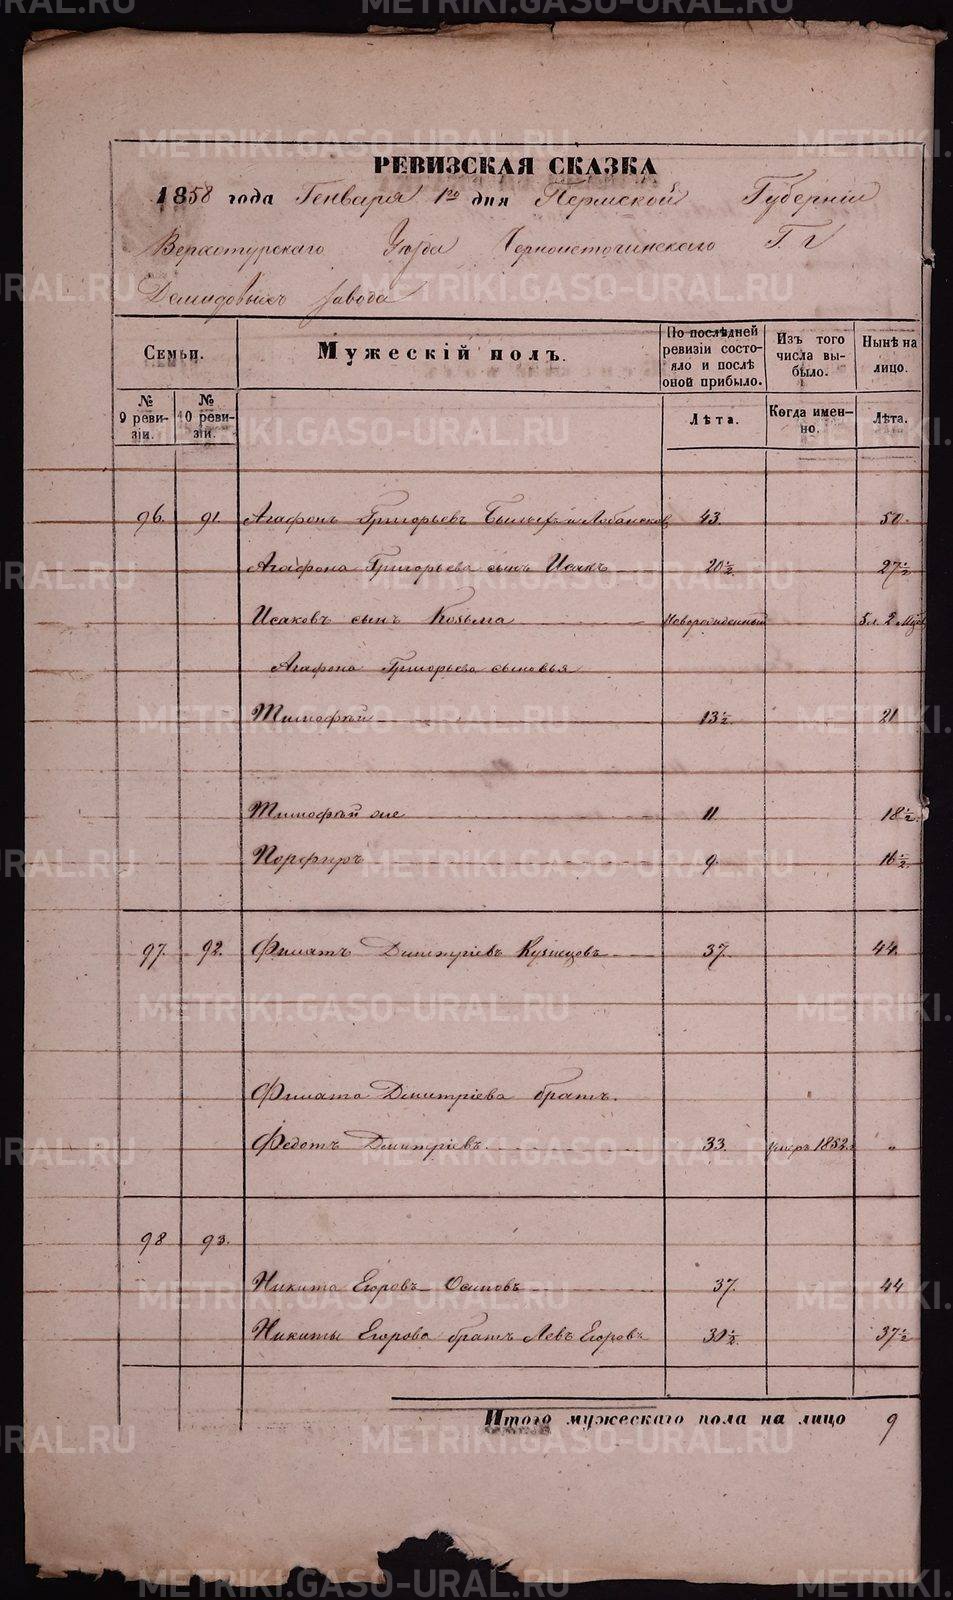 РЕВИЗСКАЯ СКАЗКА
1858 года Генваря 1го дня Пермской Губерніи
Верхотурскаго Уѣзда Черноисточинскаго Г. г
Демидовыхъ завода
Семьи.
№ 9 ревизіи.
№ 10 ревизіи.
Мужескій полъ.
По послѣдней ревизіи состояло и послѣ оной прибыло.
Лѣта.
Изъ того числа выбыло.
Когда именно.
Нынѣ на лицо.
Лѣта.
96. 91. Агафонъ Григорьевъ 43. 50.
Агафона Григорьева сынъ Исакъ 20½. 27½
Исаковъ сынъ Козьма Новорожденный 5 л. 2 Мѣс
Агафона Григорьева сыновья
Тимофѣй 13½. 21
Тимофѣй же 11 18½.
Порфиръ 9. 16½.
97. 92. Филатъ Дмитріевъ Кузнецовъ 37. 44.
Филата Дмитріева братъ.
Федотъ Дмитріевъ. 33. Умеръ 1852. "
98 93.
Никита Егоровъ Осиповъ 37. 44
Никиты Егорова братъ Левъ Егоровъ 30½. 37½
Итого мужескаго пола на лицо 9
METRIKI.GASO-URAL.RU